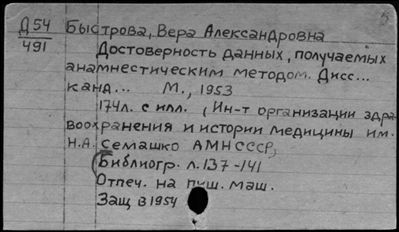 Д54 Быстрова, Вера Александровна
491 Достоверность данных, получаемых
анамнестическим методом. Дисс...
канд... М., 1953
174л. с илл. (Ин-т организации здра-
воохранения и истории медицины им.
Н.А. Семашко АМН СССР)
Библиогр. л. 137-141
Отпеч. на пиш. маш.
Защ в 1954